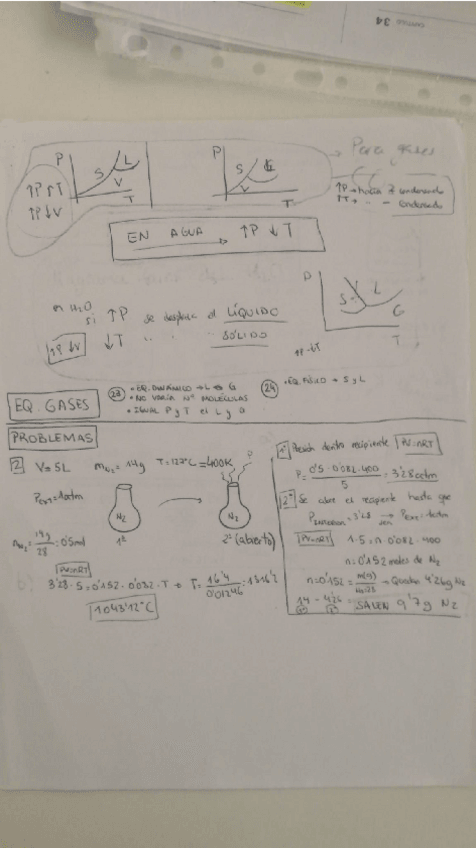 34
P
S
L
V
T
P
S
L
V
T
Para gases
↑P ↑T
↑P ↓V
↑P → hacia
↑T → - -
EN AGUA → ↑P ↓T
H2O
Si ↑P se desplaza al LÍQUIDO
↑P ↓V ↓T " " " SÓLIDO
P
S
L
G
T
↑P ↓T
EQ. GASES
23 • EQ. DINÁMICO → L ⇔ G
• NO VARÍA Nº MOLÉCULAS
• IGUAL P y T el L y G
24 • EQ. AGUA → S y L
PROBLEMAS
2 V = 5L mN2 = 14g T = 127ºC = 400K
Pext = 1atm
N2
1º
P
N2
2º (abierto)
nN2 = 14g/28 = 0'5mol
PV=nRT
3'28 · 5 = 0'152 · 0'082 · T → T = 16'4/0'01246 = 1316'2
1043'12ºC
1º Presión dentro recipiente PV=nRT
P = 0'5 · 0'082 · 400 / 5 = 3'28atm
2º Se abre el recipiente hasta que
= 3'28 → Pext = 1atm
PV=nRT 1·5 = n · 0'082 · 400
n = 0'152 moles de N2
n = 0'152 = m(g)/ → Quedan 4'26g N2
14 - 4'26 = SALEN 9'7g N2